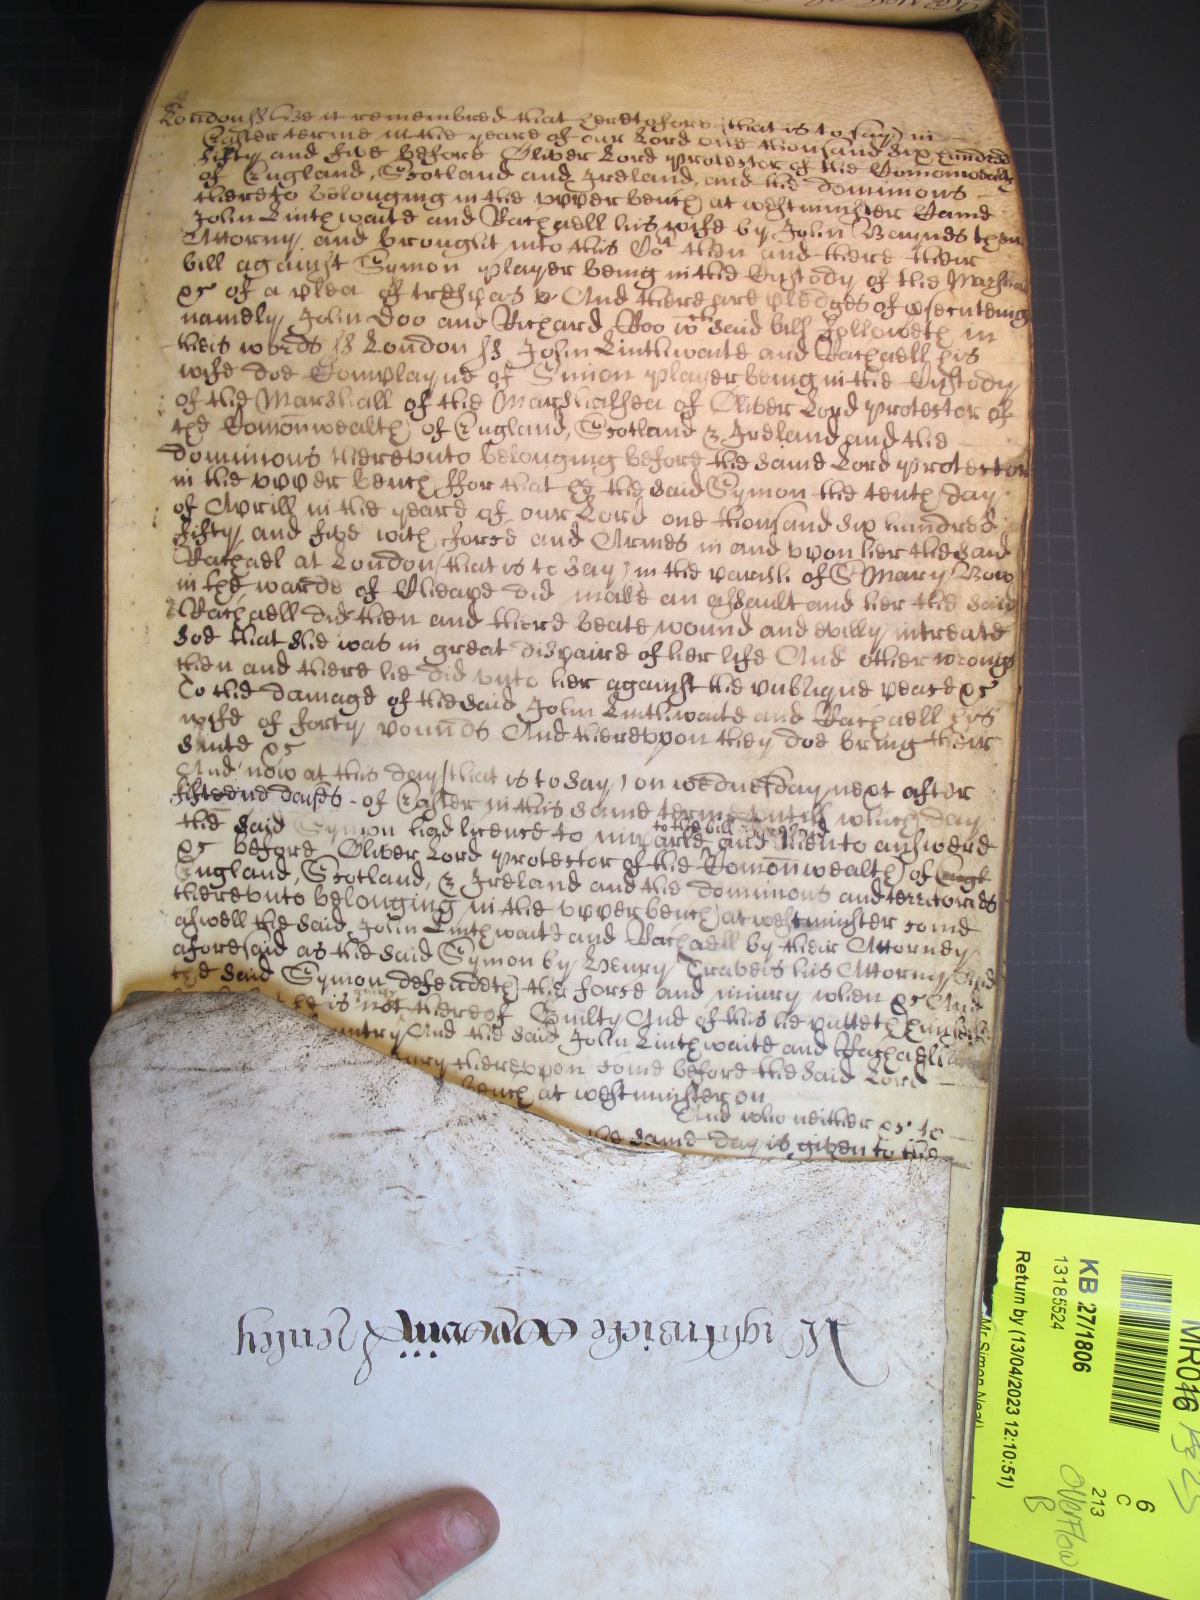 London ss Bee it remembred that heretofore (that is to say) in
Easter terme in the yeare of our Lord one thousand six hundred
fifty and five before Oliver Lord protector of the Com̄onwealth
of England, Scotland and Ireland, and the dominions
thereto belonging in the upper bench at westminster Came
John Linthwaite and Rachaell his wife by John Baynes their
Attorny, and brought into this Cot then and there their
bill against Symon player being in the Custody of the Marshall
&c of a plea of trespas &c And there are pledges of psecuteing
namely, John Doo and Richard Roo wch said bill followeth in
theis words ss London ss John Linthwaite and Rachaell his
wife doe Complayne of Simon player being in the Custody
of the Marshall of the Marshalsea of Oliver Lord protector of
the Com̄onwealth of England, Scotland & Ireland and the
dominions thereunto belonging before the same Lord protector
in the upper bench ffor that he the said Symon the tenth day
of Aprill in the yeare of our Lord one thousand six hundred
fifty and five with force and Armes in and upon her the said
Rachael at London (that is to say) in the parish of St Mary Bow
in the warde of Cheape did make an assault and her the said
Rachaell did then and there beate wound and evilly intreate
soe that she was in great dispaire of her life And other wrongs
then and there he did unto her against the publique peace &c
To the damage of the said John Linthwaite and Rachaell his
wife of forty pounds And thereupon they doe bring their
suite &c
And now at this day (that is to say) on wednesday next after
fifteene dayes of Easter in this same terme untill which day
the said Symon had licence to imparle to the bill and then to answere
&c before Oliver Lord protector of the Com̄onwealth of Engl
England, Scotland, & Ireland and the dominions and territories
thereunto belonging in the upper bench at westminster come
aswell the said John Linthwaite and Rachaell by their Attorney
aforesaid as the said Symon by Henry Travers his Attorny And
the said Symon defendeth the force and iniury when &c And
he is not thereof Guilty And of this he putteth himself
Country And the said John Linthwaite and Rachaell
Jury thereupon come before the said Lord
bench at westminster on
And who neither &c to
the same day is given to the
Henley
KB 271806
13185524
Return by (13/04/2023 12:10:51)
Mr Simon Neal)
MR016
6
C
213
Overflow
B